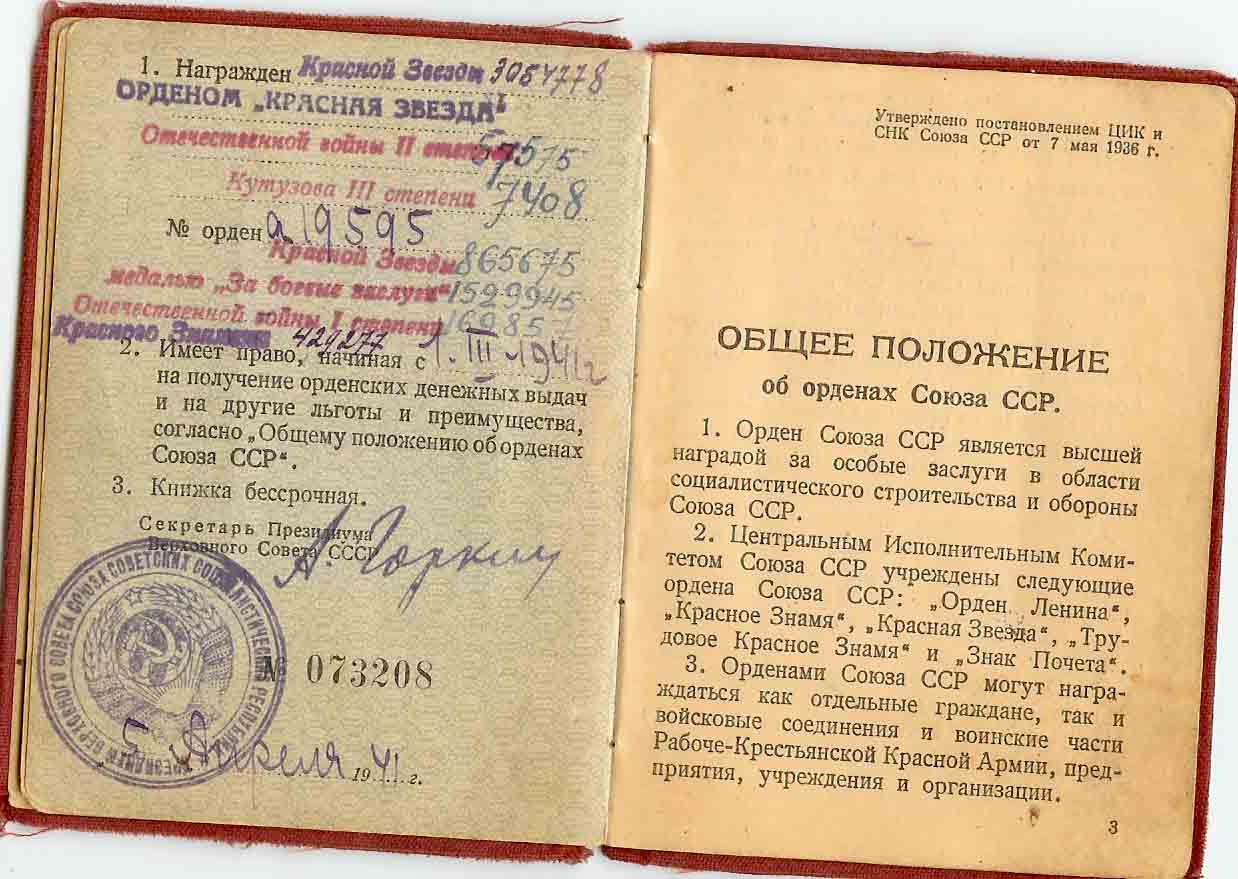 1. Награжден Красной Звезды 3054778
ОРДЕНОМ „КРАСНАЯ ЗВЕЗДА"
Отечественной войны II степени 57515
Кутузова III степени 7408
№ орденa 19595
Красной Звезды 865675
медалью „За боевые заслуги" 1529945
Отечественной войны I степени 169857
Красного Знамени 429277
2. Имеет право, начиная с 1. III 1941 г
на получение орденских денежных выдач
и на другие льготы и преимущества,
согласно „Общему положению об орденах
Союза ССР".
3. Книжка бессрочная.
Секретарь Президиума
Верховного Совета СССР
А. Горкин
№ 073208
5 Апреля 1941 г.
Утверждено постановлением ЦИК и
СНК Союза ССР от 7 мая 1936 г.
ОБЩЕЕ ПОЛОЖЕНИЕ
об орденах Союза ССР.
1. Орден Союза ССР является высшей
наградой за особые заслуги в области
социалистического строительства и обороны
Союза ССР.
2. Центральным Исполнительным Коми-
тетом Союза ССР учреждены следующие
ордена Союза ССР: „Орден Ленина",
„Красное Знамя", „Красная Звезда", „Тру-
довое Красное Знамя" и „Знак Почета".
3. Орденами Союза ССР могут награ-
ждаться как отдельные граждане, так и
войсковые соединения и воинские части
Рабоче-Крестьянской Красной Армии, пред-
приятия, учреждения и организации.
3